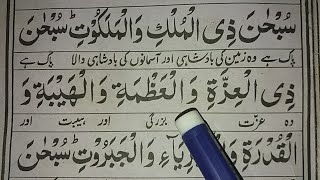 سُبْحٰنَ ذِی الْمُلْكِ وَالْمَلَكُوْتِ ؕ سُبْحٰنَ
پاک ہے وہ زمین کی بادشاہی اور آسمانوں کی بادشاہی والا پاک ہے
ذِی الْعِزَّةِ وَالْعَظَمَةِ وَالْهَيْبَةِ وَ
وہ عزت اور بزرگی اور ہیبت اور
الْقُدْرَةِ وَالْجَبَرُوْتِ ؕ سُبْحٰنَ